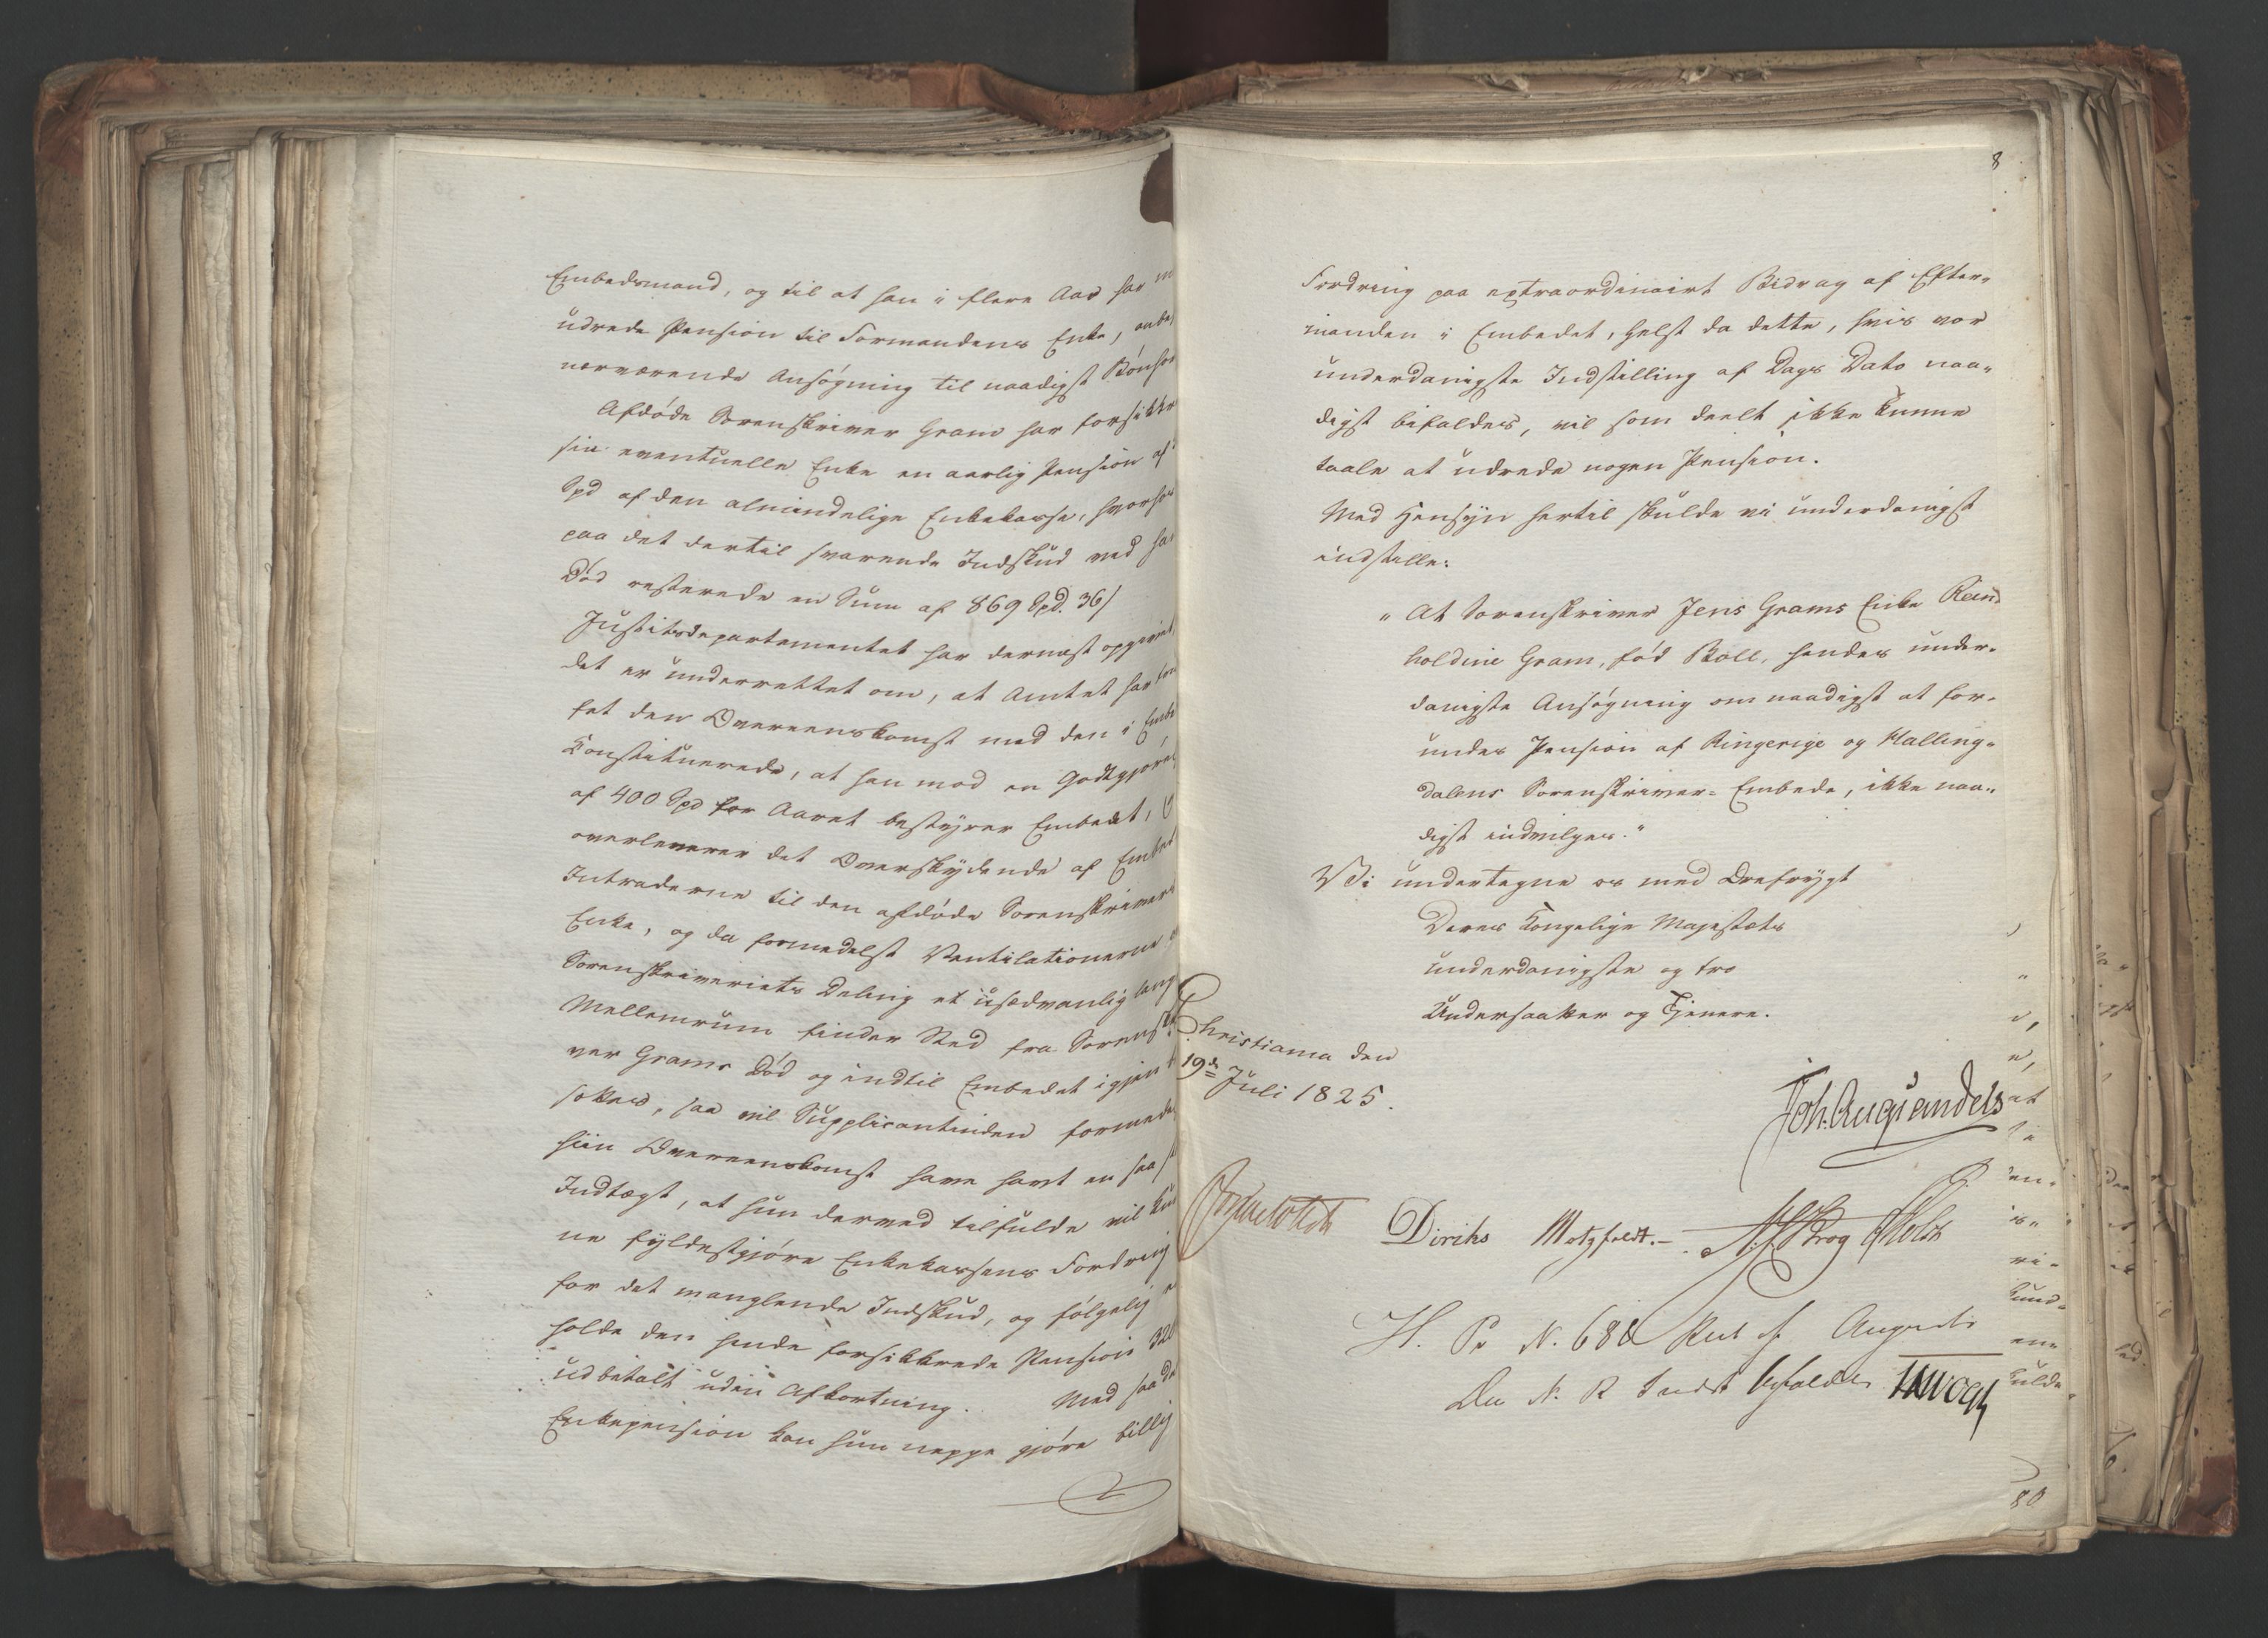 Embedsmand, og til at han i flere Aar har
udrede Pension til Formandens Enke,
nærværende Ansøgning til naadigst Bønhør
Afdøde Sorenskriver Gram har forsikkre
sin eventuelle Enke en aarlig Pension af
Spd af den almindelige Enkekasse, hvorhos
paa det dertil svarende Indskud ved ha
Død resterede en Sum af 869 Spd. 36/
Justitsdepartementet har dernæst opgivet
det er underrettet om, at Amtet har
fet den Overeenskomst med den i Embe
Constituerede, at han mod en Godtgjørel
af 400 Spd for Aaret bestyrer Embedet,
overleverer det Overskydende af Embed
Intraderne til den afdøde Sorenskrivers
Enke, og da formedelst Ventilationerne
Sorenskriveriets Deling et usædvanlig lang
Mellemrum finder Sted fra Sorenskri
ver Grams Død og indtil Embedet igjen
sættes, saa vil Supplicantinden formede
hiin Overeenskomst have havt en saa
Indtægt, at hun derved tilfulde vil kun
ne fyldestgjøre Enkekassens Fordring
for det manglende Indskud, og følgelig
holde den hende forsikkrede Pension 320
udbetalt uden Afkortning. Med saada
Enkepension kan hun neppe gjøre billig
8
Fordring paa extraordinairt Bidrag af Efter-
manden i Embedet, helst da dette, hvis vor
underdanigste Indstilling af Dags Dato naa-
digst bifaldes, vil som deelt ikke kunne
taale at udrede nogen Pension.
Med Hensyn hertil skulde vi underdanigst
indstille:
"At Sorenskriver Jens Grams Enke Rein-
holdine Gram, fød Boll, hendes under-
danigste Ansøgning om naadigst at for-
undes Pension af Ringerige og Halling-
dalens Sorenskriver-Embede, ikke naa-
digst indvilges."
Vi undertegne os med Ærefrygt
Deres Kongelige Majestæts
underdanigste og tro
Undersaatter og Tjenere.
Christiania den
19de Juli 1825.
Joh. Aug. Sandels
Diriks Motzfeldt. Krog Holst
N. 688 August
Indst bifaldes